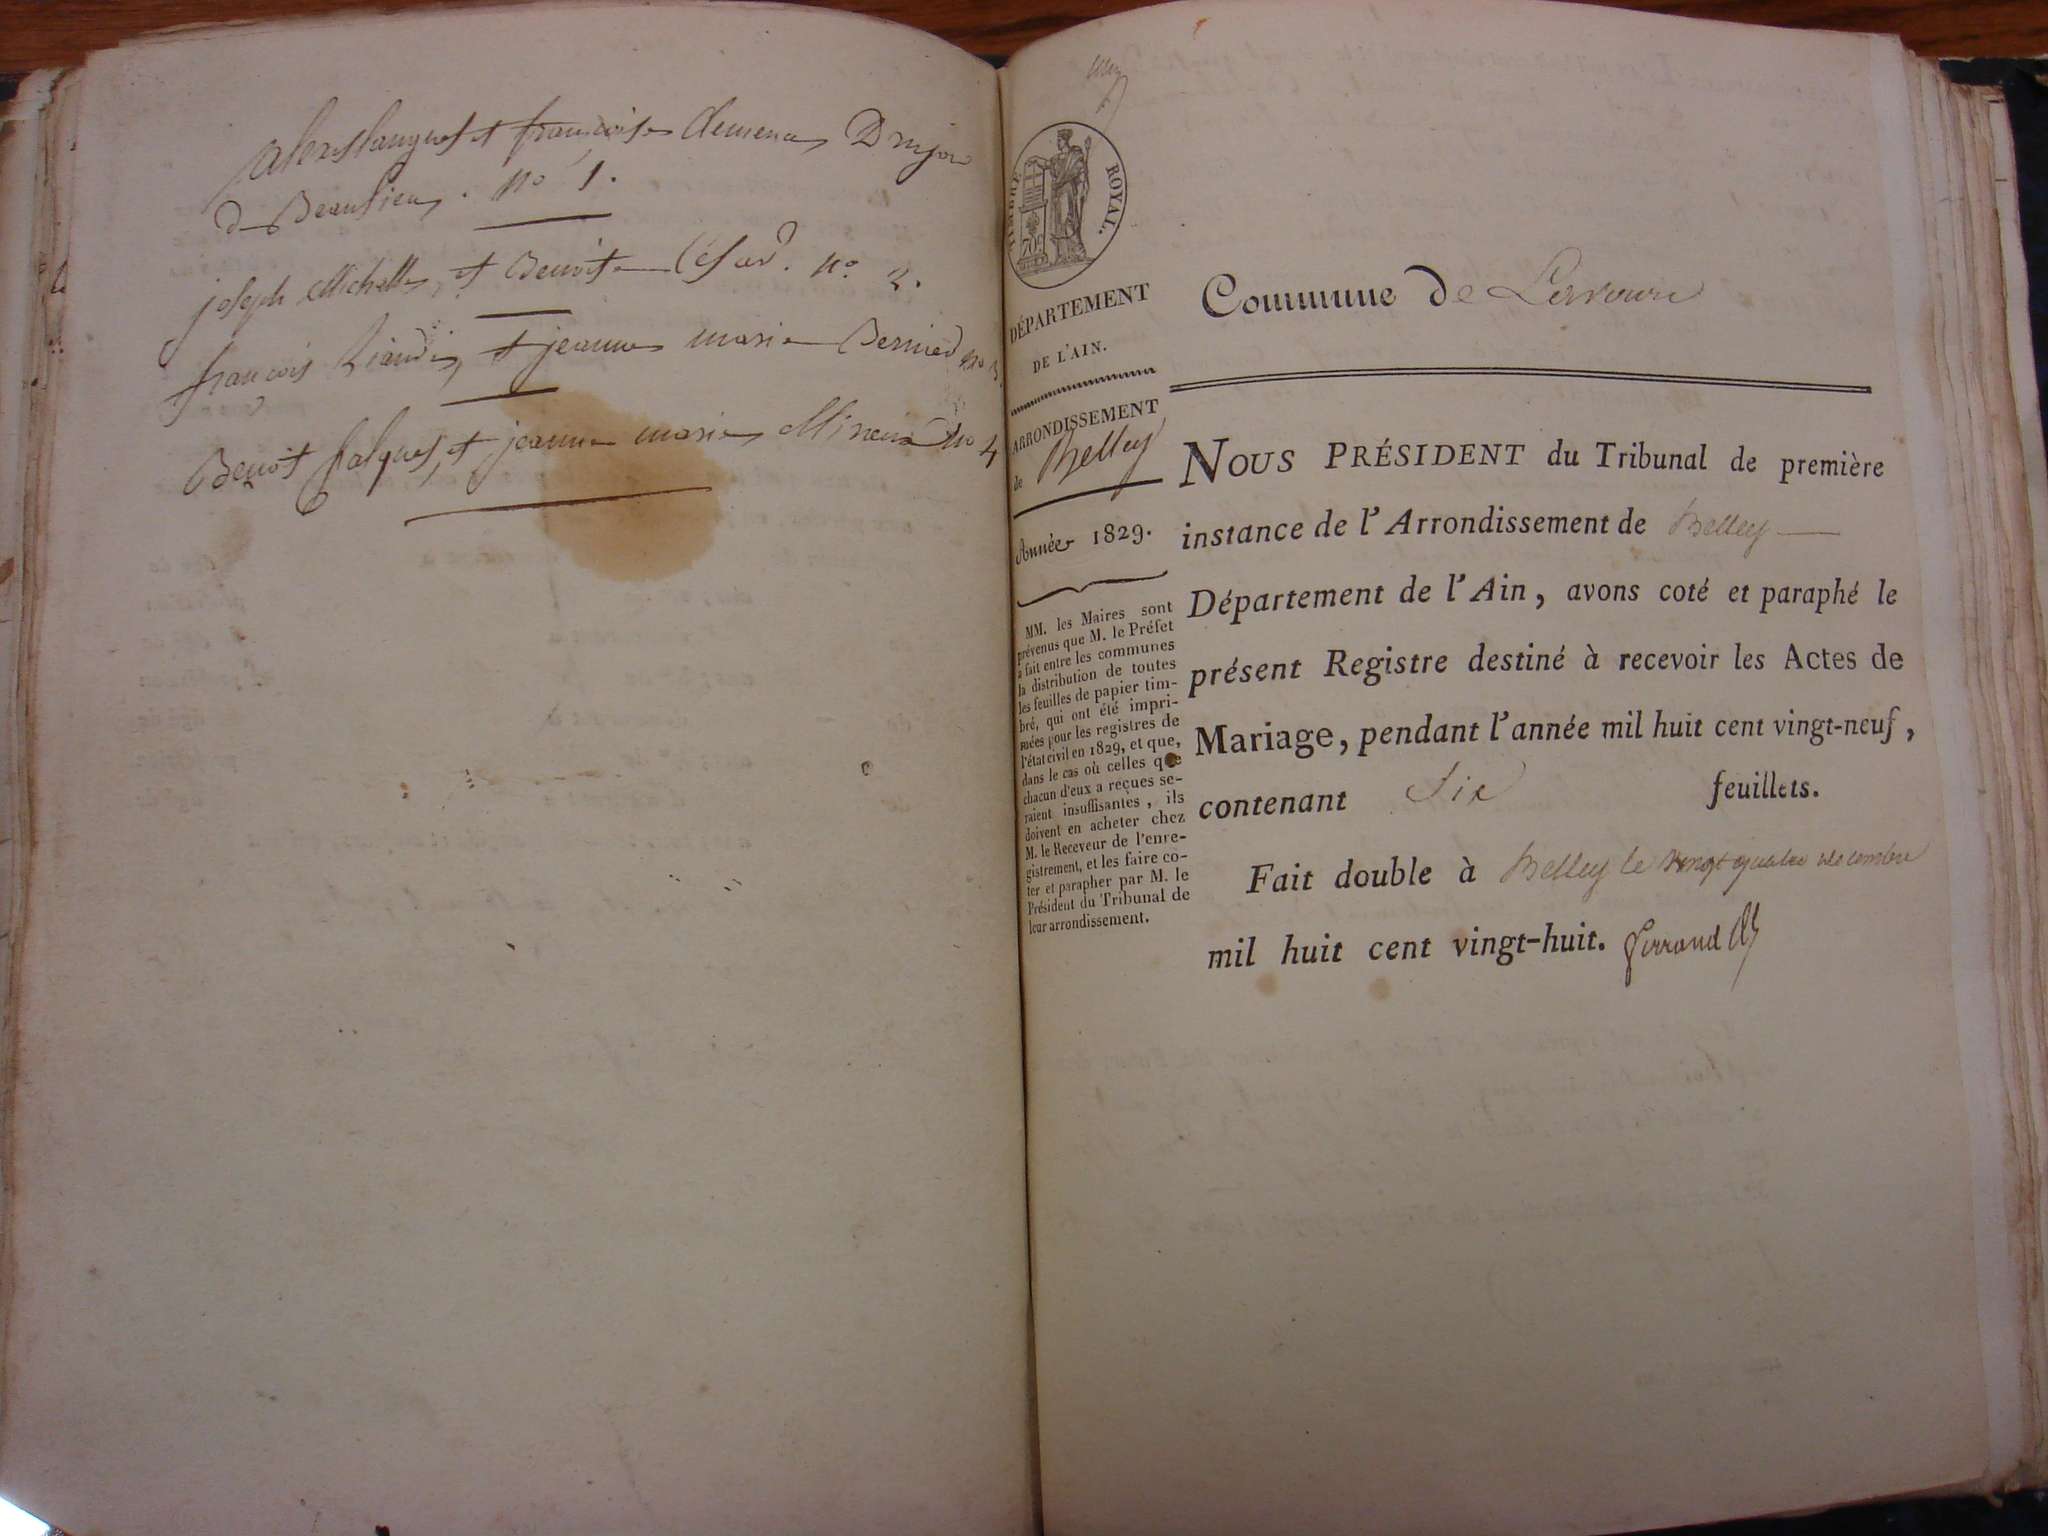 et françoise Clemence Drujon
de Beaulieu. no 1.
joseph Michelle, et Benoite César. no. 2.
françois et jeanne marie Bernier no 3.
Benoit falques, et jeanne marie no 4
TIMBRE ROYAL.
70c
DÉPARTEMENT
DE L'AIN.
ARRONDISSEMENT
de Belley
Année 1829.
MM. les Maires sont
prévenus que M. le Préfet
a fait entre les communes
la distribution de toutes
les feuilles de papier tim-
bré, qui ont été impri-
mées pour les registres de
l'état civil en 1829, et que,
dans le cas où celles que
chacun d'eux a reçues se-
raient insuffisantes, ils
doivent en acheter chez
M. le Receveur de l'enre-
gistrement, et les faire co-
ter et parapher par M. le
Président du Tribunal de
leur arrondissement.
Commune de
NOUS PRÉSIDENT du Tribunal de première
instance de l'Arrondissement de Belley
Département de l'Ain, avons coté et paraphé le
présent Registre destiné à recevoir les Actes de
Mariage, pendant l'année mil huit cent vingt-neuf,
contenant Six feuillets.
Fait double à Belley le vingt quatre décembre
mil huit cent vingt-huit. Ferrand